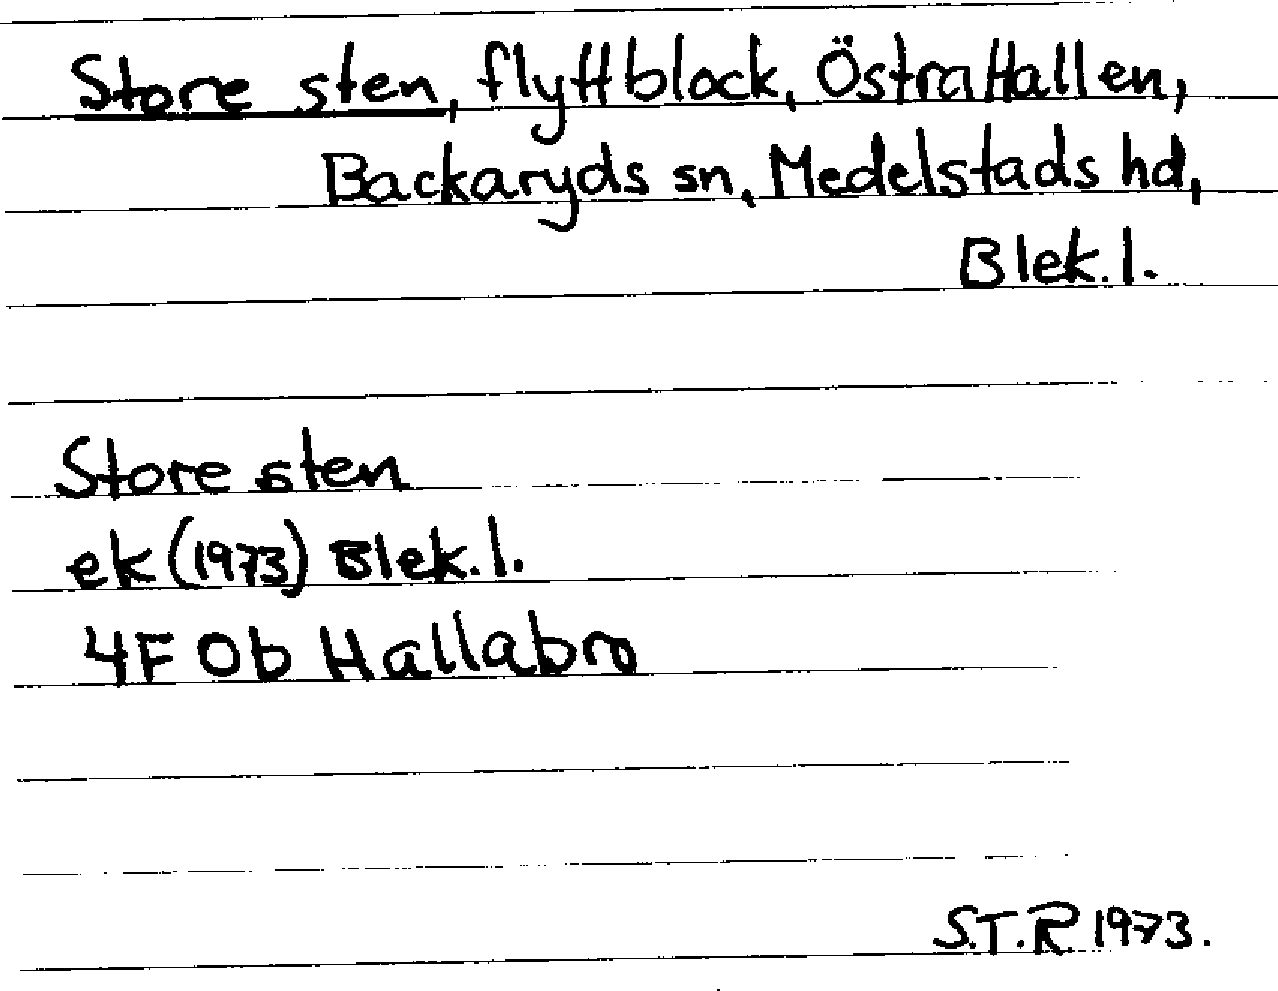 Store sten, flyttblock, Östra Hallen,
Backaryds sn, Medelstads hd,
Blek. l.
Store sten
ek (1973) Blek. l.
4F 0b Hallabro
S.T.R 1973.